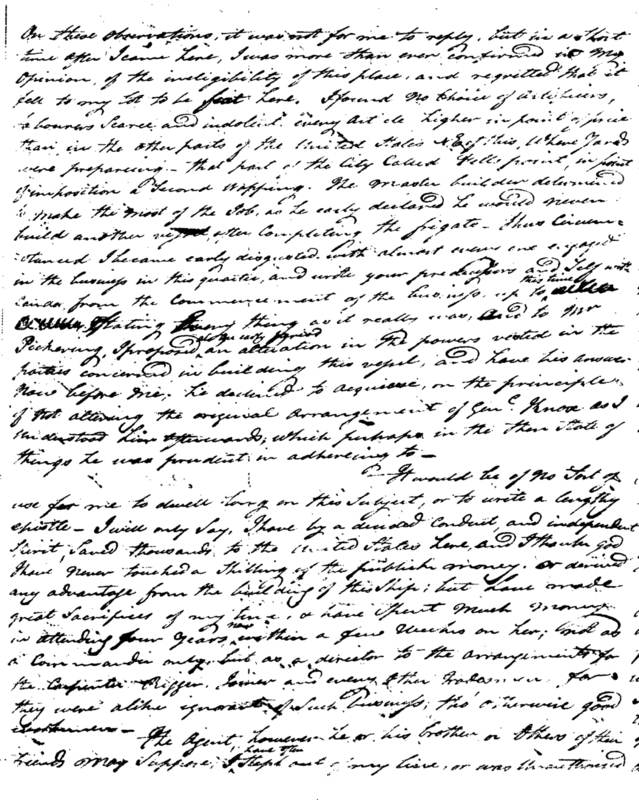 On these observations, it was not for me to reply, but in a short
time after I came here, I was more than ever confirmed in my
Opinion, of the ineligibility of this place, and regretted that it
fell to my lot to be sent here. I found no choice of artificers,
labourers scarce and indolent. every article higher in point of price
than in the other parts of the United States N.E. of this, Where Yards
were preparing - that part of the City Called Fells point, in point
of imposition a Second Wapping. The master builder determined
to make the most of the Job, as he early declared he would never
build another vessel after Completing the frigate - thus Circum=
stanced I became early disgusted with almost every one engaged
in the business in this quarter, and wrote your predecessors and Self with
candor from the Commencement of the business up to this time
Stating Every thing as it really was, and to Mr
Pickering, I proposed, at an early period an alteration in the powers vested in the
parties concerned in building this vessel, and have his answer
now before me; he declined to acquiesce, on the principle
of not altering the original arrangement of Genl. Knox as I
understood him afterwards, which perhaps in the then State of
things he was prudent in adhereing to -
It would be of no Sort of
use for me to dwell long on this Subject, or to write a lengthy
epistle - I will only Say, I have by a decided Conduct, and independent
Spirit, Saved thousands to the United States here, and I thank god
I have never touched a shilling of the publick money, or derived
any advantage from the building of this ship; but have made
great Sacrifices of my time, & have Spent Much Money
in attending four Years now within a few Weeks on her; not as
a Commander only, but as a director to the arrangements for
the Carpenter Rigger, Joiner and every other Tradesman. for
they were alike ignorant of Such business, tho' otherwise good
The Agent, however he or his brother or Others of their
friends may Suppose, I have often stept out of my line, or was Unauthorised